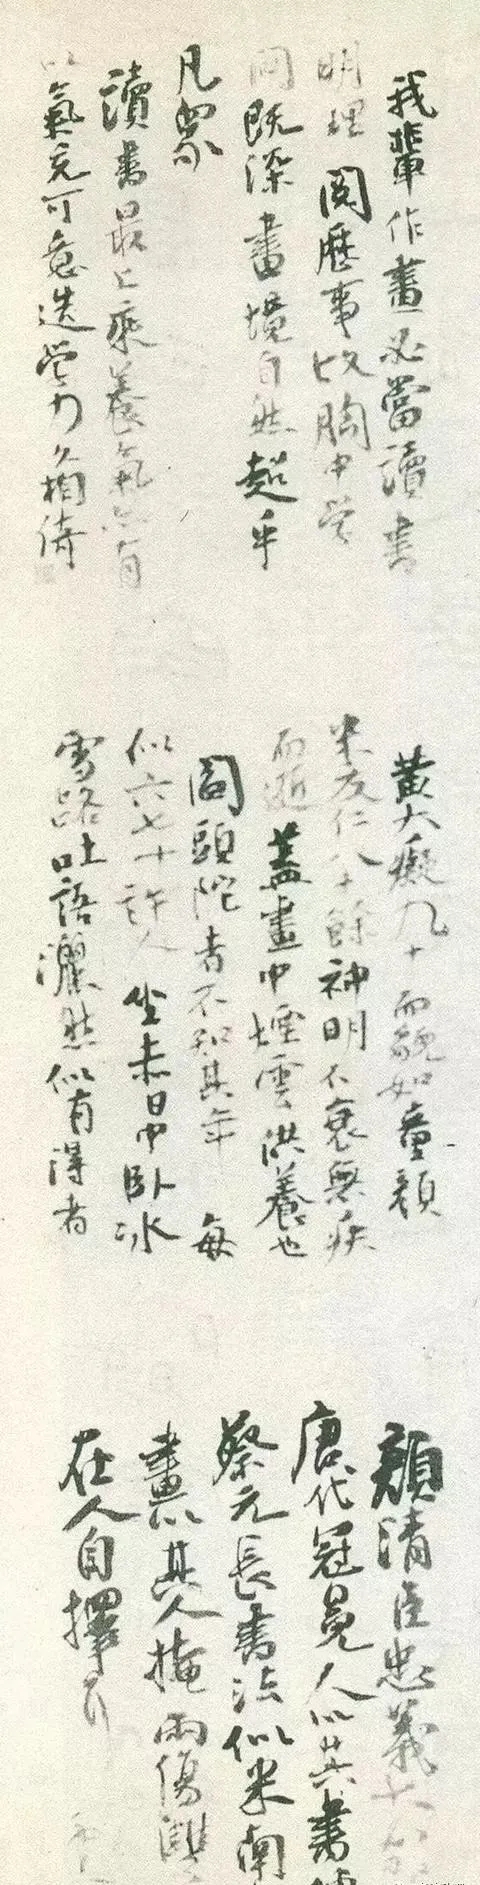 我輩作畫必當讀書
明理閱歷事故胸中學
問既深畫境自然超乎
凡眾
讀書最上乘養氣亦有
以氣充可意造學力久相倚
黃大癡九十而貌如童顏
米友仁八十餘神明不衰無疾
而逝蓋畫中煙雲供養也
閻頭陀者不知其年每
似六七十許人坐赤日中臥冰
雪路吐語灑然似有得者
顏清臣忠義大節
唐代冠冕人以其書
蔡元長書法似米南
畫以其人掩兩傷雙
在人自擇耳